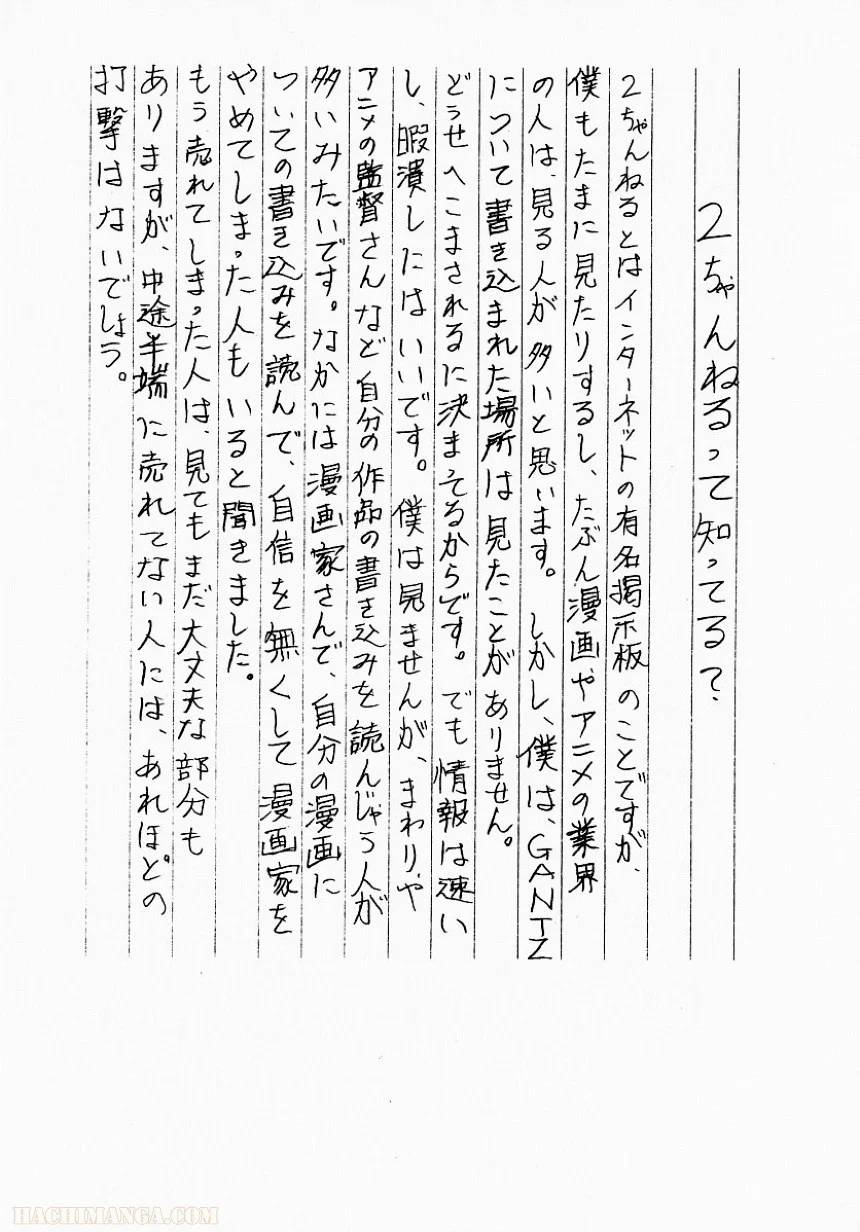 2ちゃんねるって知ってる?
2ちゃんねるとはインターネットの有名掲示板のことですが、
僕もたまに見たりするし、たぶん漫画やアニメの業界
の人は、見る人が多いと思います。しかし、僕は、GANTZ
について書き込まれた場所は見たことがありません。
どうせへこまされるに決まってるからです。でも情報は速い
し、暇潰しにはいいです。僕は見ませんが、まわりや
アニメの監督さんなど自分の作品の書き込みを読んじゃう人が
多いみたいです。なかには漫画家さんで、自分の漫画に
ついての書き込みを読んで、自信を無くして漫画家を
やめてしまった人もいると聞きました。
もう売れてしまった人は、見てもまだ大丈夫な部分も
ありますが、中途半端に売れてない人には、あれほどの
打撃はないでしょう。
HACHIMANGA.COM